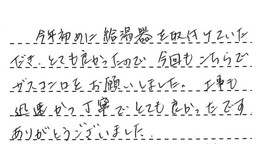 今年初めに給湯器を取付けていた
だき、とても良かったので今回もこちらで
ガスコンロをお願いしました。工事も
迅速かつ丁寧でとても良かったです
ありがとうございました